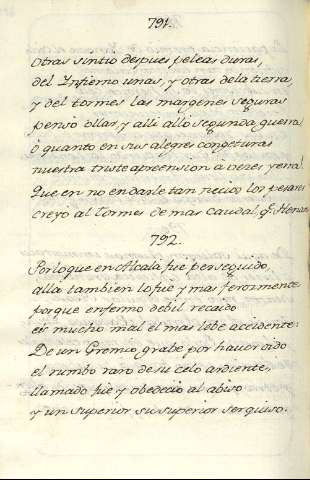 791.
Otras sintio despues peleas duras,
del Infierno unas, y otras dela tierra,
y del tormes las margenes seguras
penso ollar, y alli alló segunda guerra,
ò quanto en sus alegres congeturas
nuestra triste apreension à veces yerra!
Que en no endarle tan recios los pesares
creyo al Tormes de mas caudal, q.e Henar
792.
Porloque en Alcalà fuè perseguido,
alla tambien lo fuè y mas ferozmente
porque enfermo debil recaido
es mucho mal el mas lebe accidente:
De un Gremio, grabe por haver oido
el rumbo raro de su celo ardiente,
llamado fuè y obedecio al abiso
y un superior, su superior ser quiso.